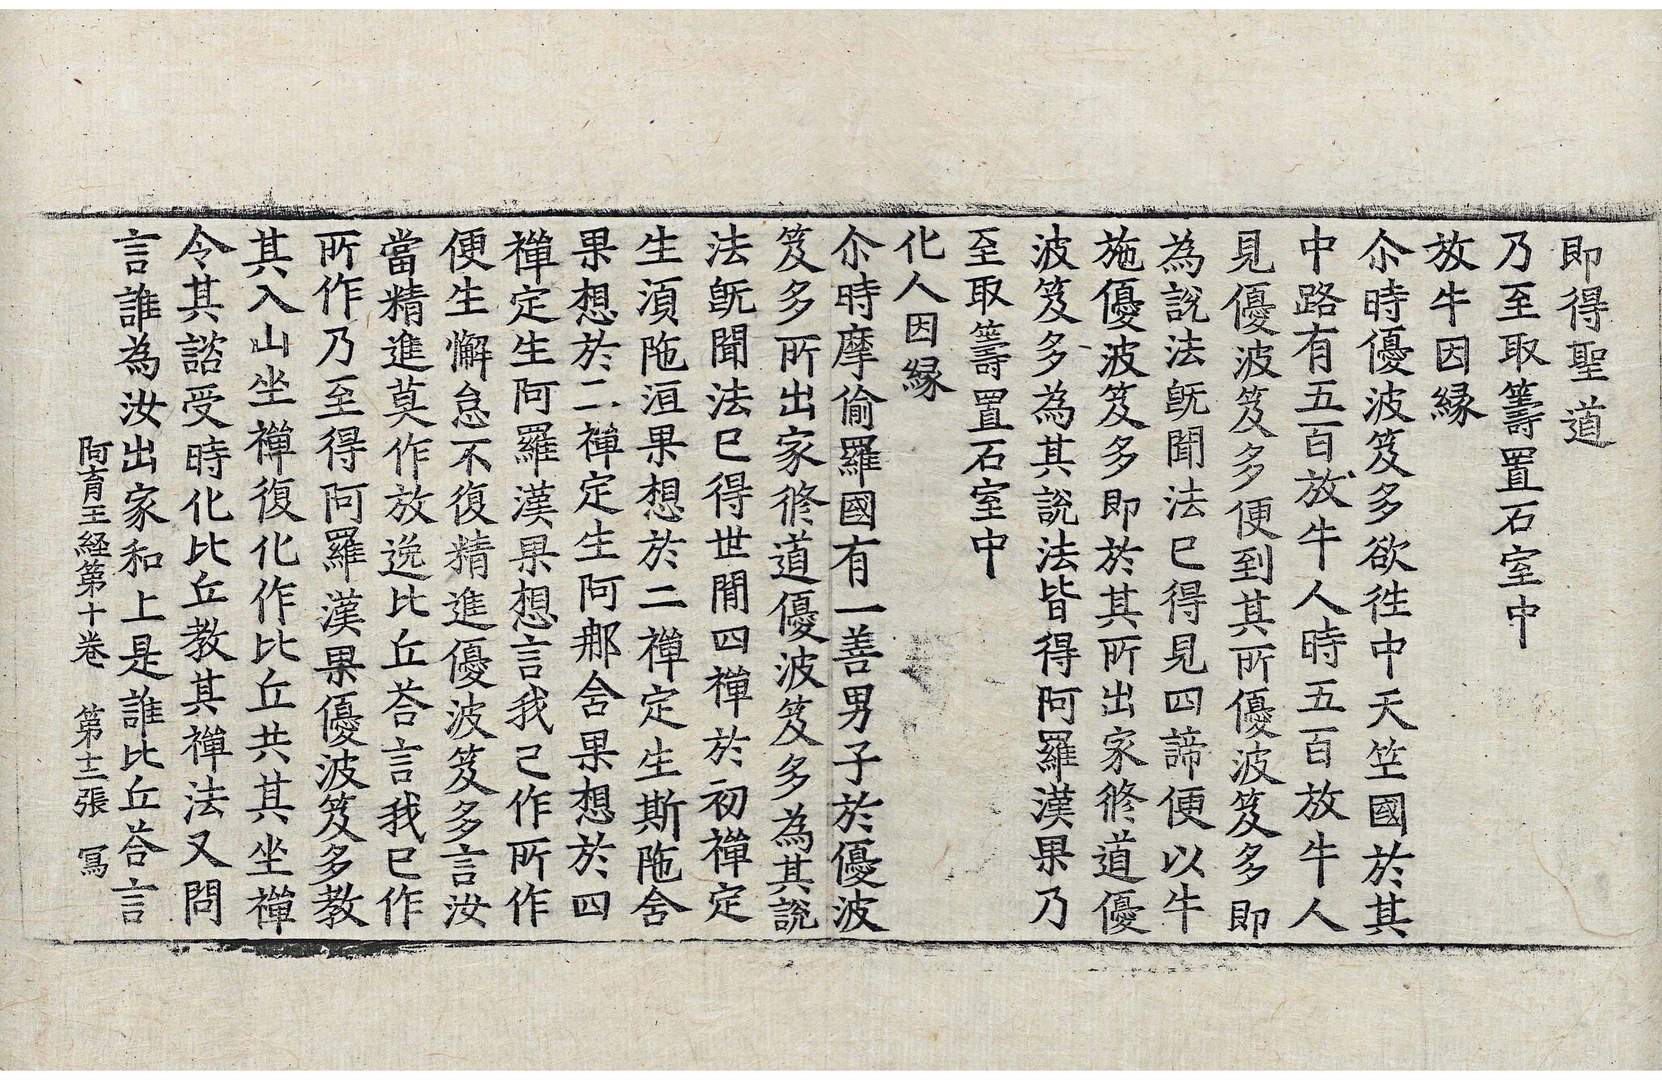 即得聖道
乃至取籌置石室中
放牛因縁
尒時優波笈多欲往中天竺國於其
中路有五百放牛人時五百放牛人
見優波笈多便到其所優波笈多即
為說法旣聞法已得見四諦便以牛
施優波笈多即於其所出家修道優
波笈多為其說法皆得阿羅漢果乃
至取籌置石室中
化人因縁
尒時摩偷羅國有一善男子於優波
笈多所出家修道優波笈多為其說
法旣聞法已得世閒四禪於初禪定
生湏陁洹果想於二禪定生斯陁含
果想於二禪定生阿那含果想於四
禪定生阿羅漢果想言我已作所作
便生懈怠不復精進優波笈多言汝
當精進莫作放逸比丘荅言我已作
所作乃至得阿羅漢果優波笈多教
其入山坐禪復化作比丘共其坐禪
令其諮受時化比丘教其禪法又問
言誰為汝出家和上是誰比丘荅言
阿育王経第十卷 第十二張 冩